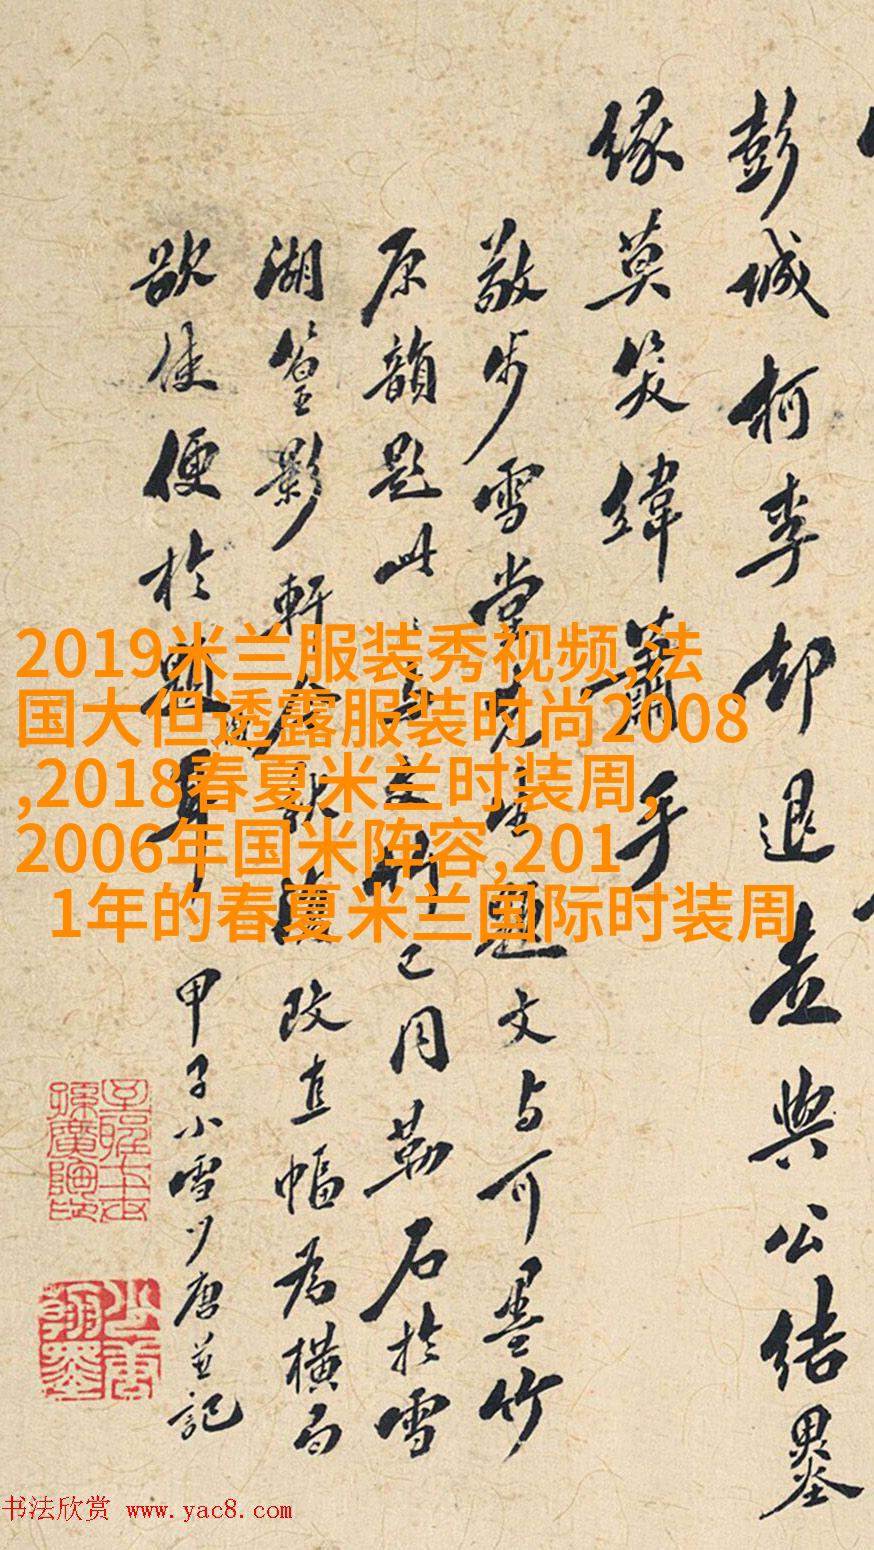 彭城柯李却退走與公結墨
緣莫笑緯蕭手
敬步雪堂先生題文与可墨竹
原韻題此文冊已同勒石於雪
湖篁影軒今欲改直幅為橫而
欲使便於題耳
甲子小雪少唐並記
2019米兰服装秀视频,法
国大但透露服装时尚2008
,2018春夏米兰时装周,
2006年国米阵容,201
1年的春夏米兰国际时装周
书法欣赏 www.yac8.com